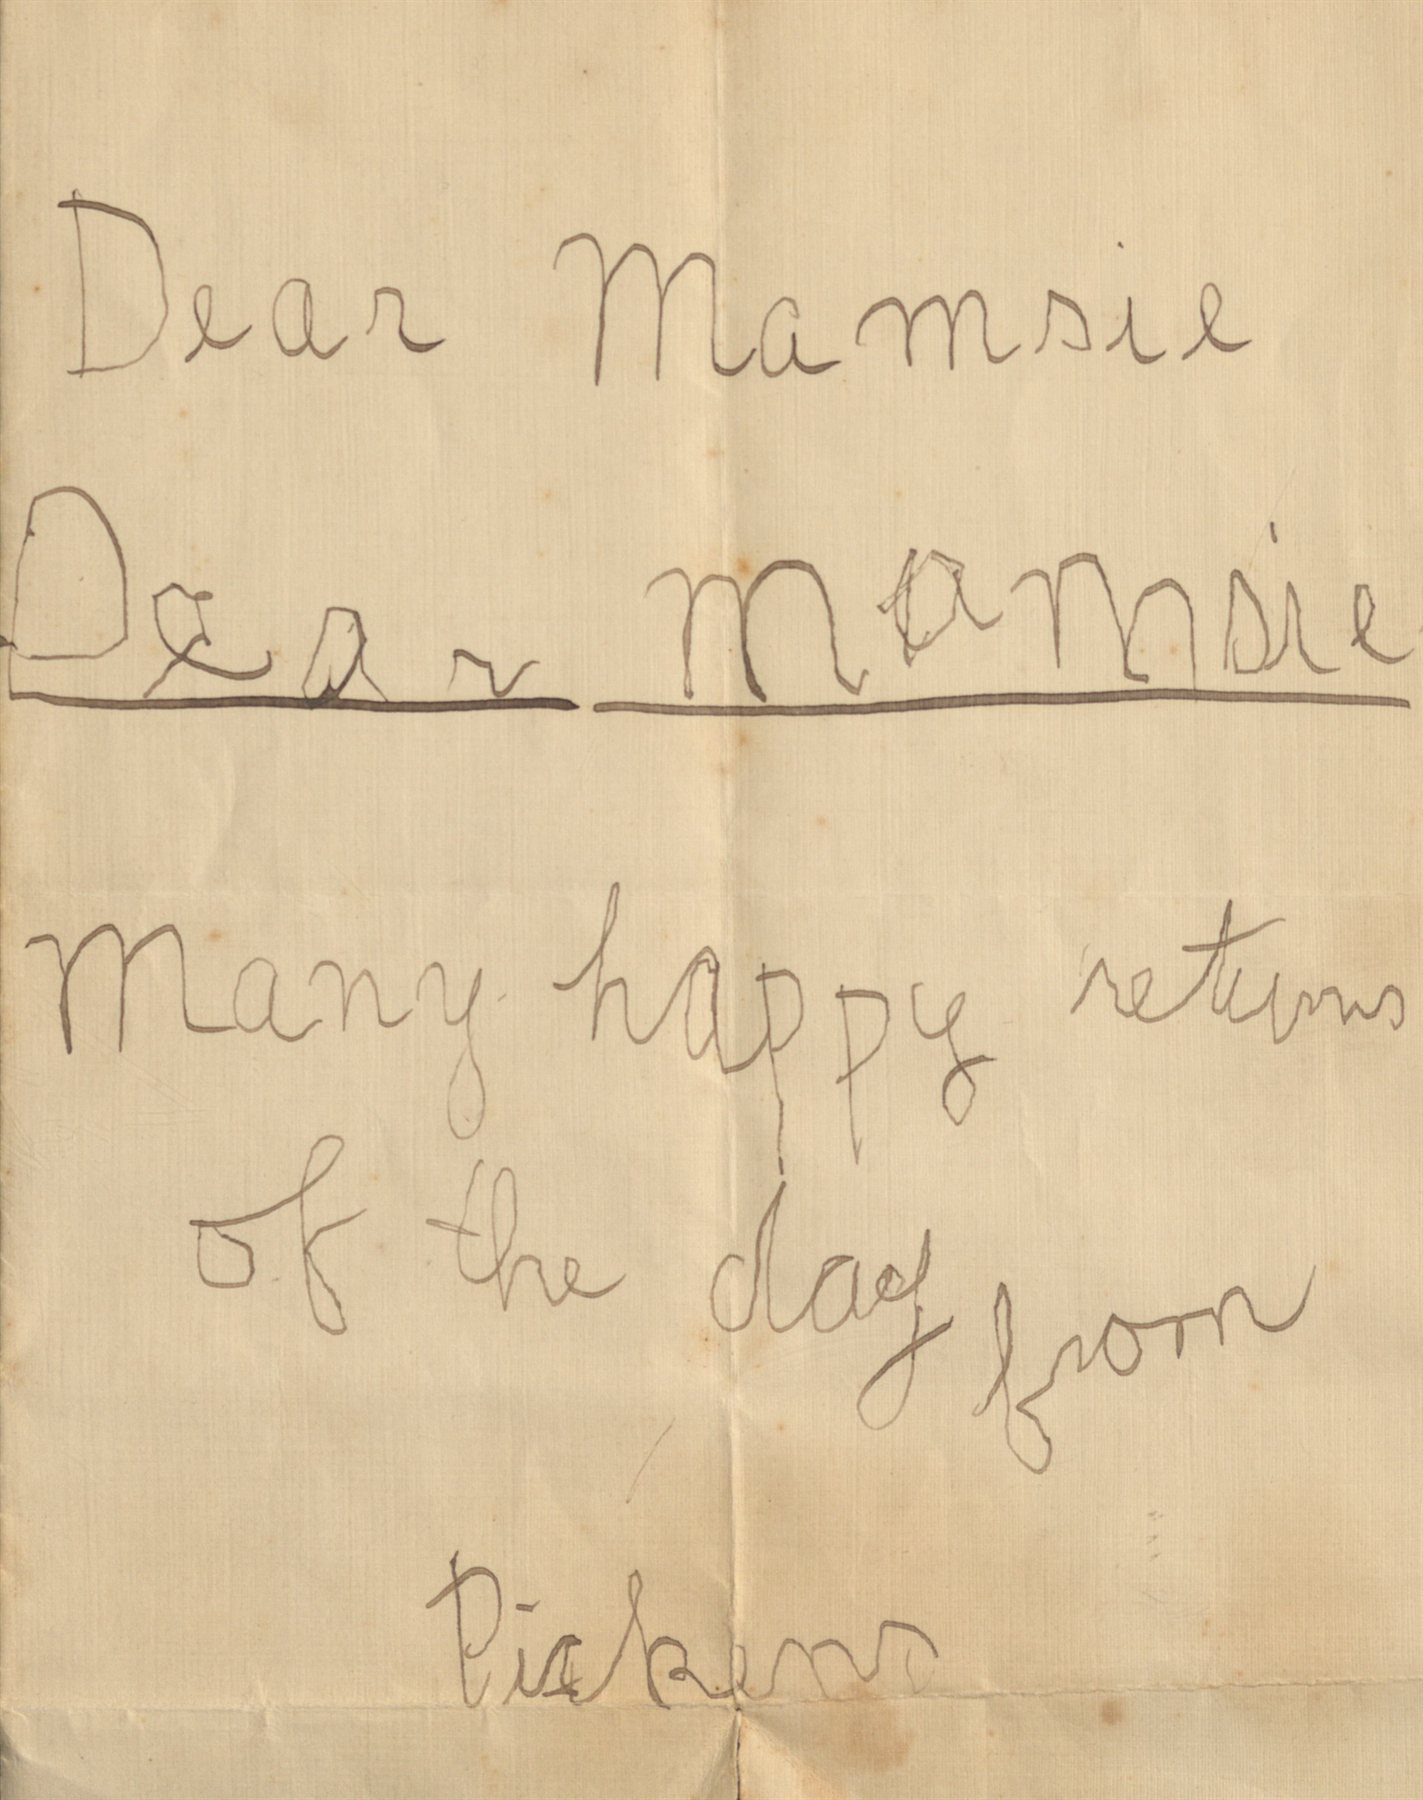 Dear Mamsie
Dear Mamsie
Many happy returns
of the day from
Pickens